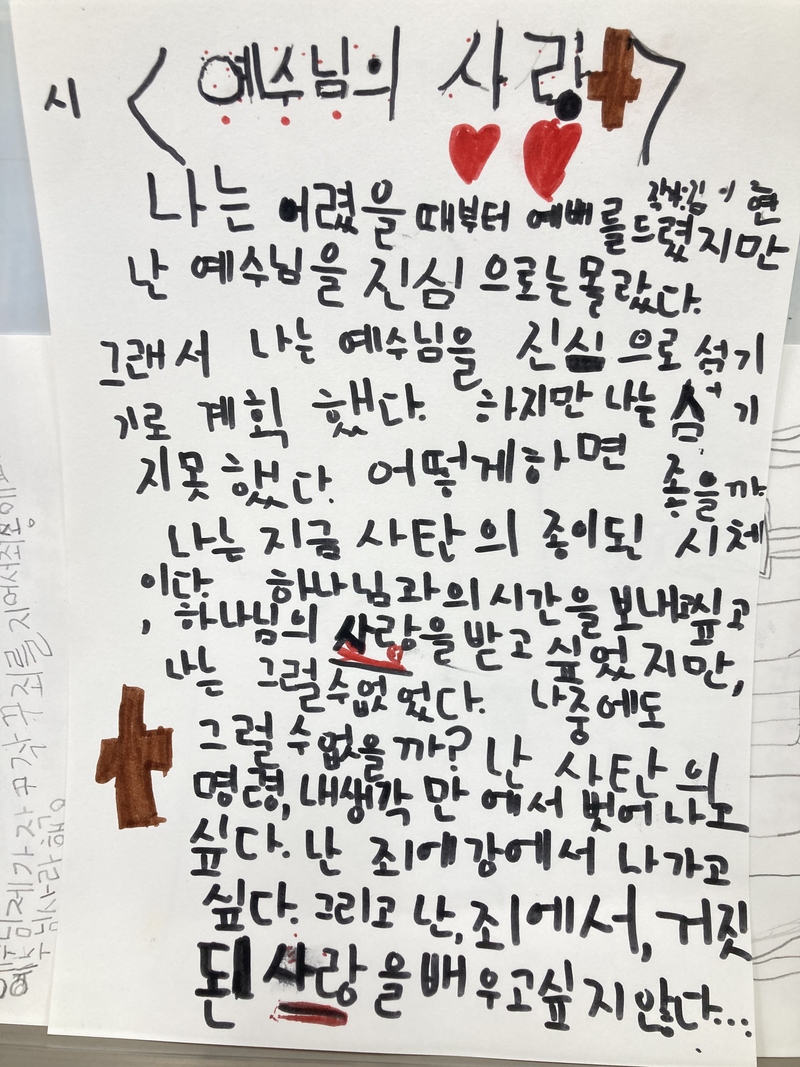 시 <예수님의 사랑>
작사:김이현
나는 어렸을 때부터 예배를 드렸지만
난 예수님을 진심으로는 몰랐다.
그래서 나는 예수님을 진심으로 섬기
기로 계획 했다. 하지만 나는 섬기
지 못 했다. 어떻게하면 좋을까.
나는 지금 사탄의 종이된 시체
이다. 하나님과의 시간을 보내고싶고
, 하나님의 사랑을 받고 싶었지만,
나는 그럴수없었다. 나중에도
그럴 수 없을까? 난 사탄의
명령, 내생각만에서 벗어나고
싶다. 난 죄에강에서 나가고
싶다. 그리고 난, 죄에서, 거짓
된 사랑을 배우고싶지않다...